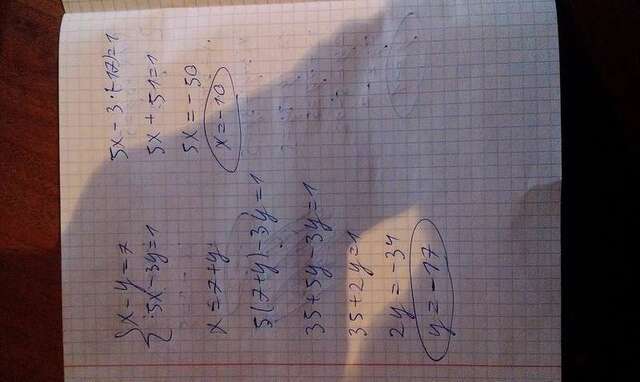 x - y = 7
5x - 3y = 1
x = 7 + y
5(7+y) - 3y = 1
35 + 5y - 3y = 1
35 + 2y = 1
2y = -34
y = -17
5x - 3·(-17) = 1
5x + 51 = 1
5x = -50
x = -10